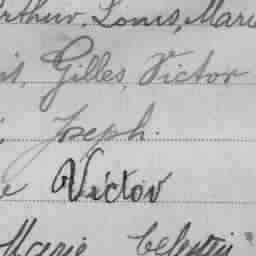 Arthur, Louis, Marie
Gilles, Victor
Joseph.
Victor
Marie Celestin